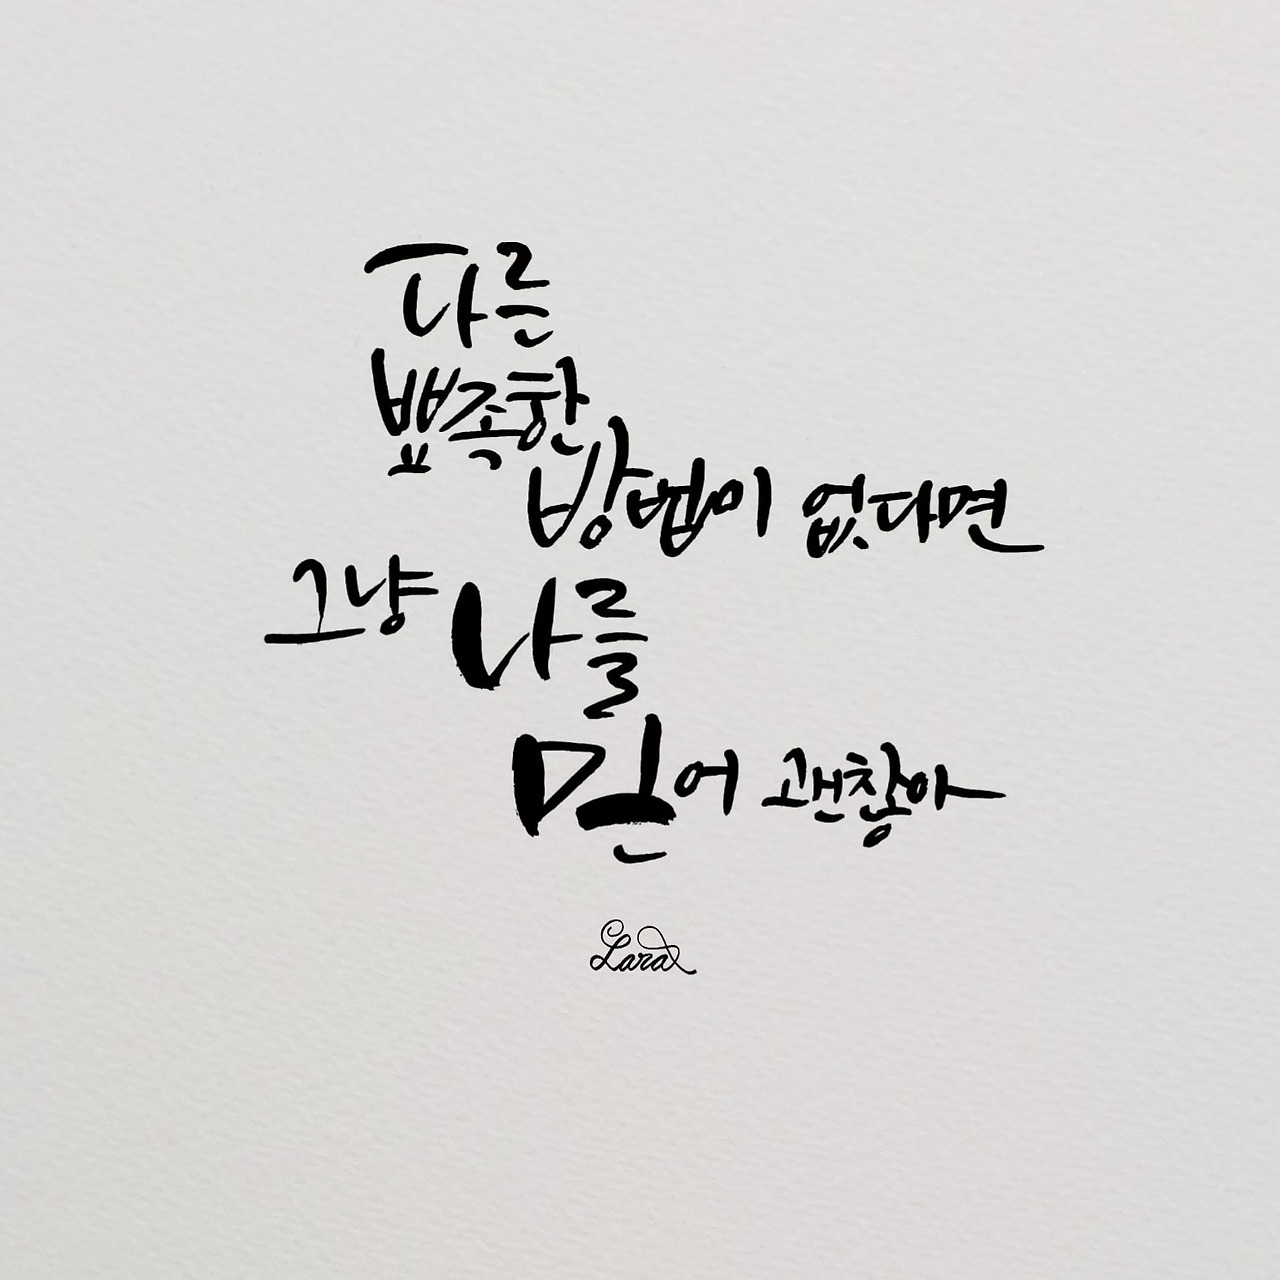 다른
뾰족한
방법이 없다면
그냥 나를
믿어 괜찮아
Lara